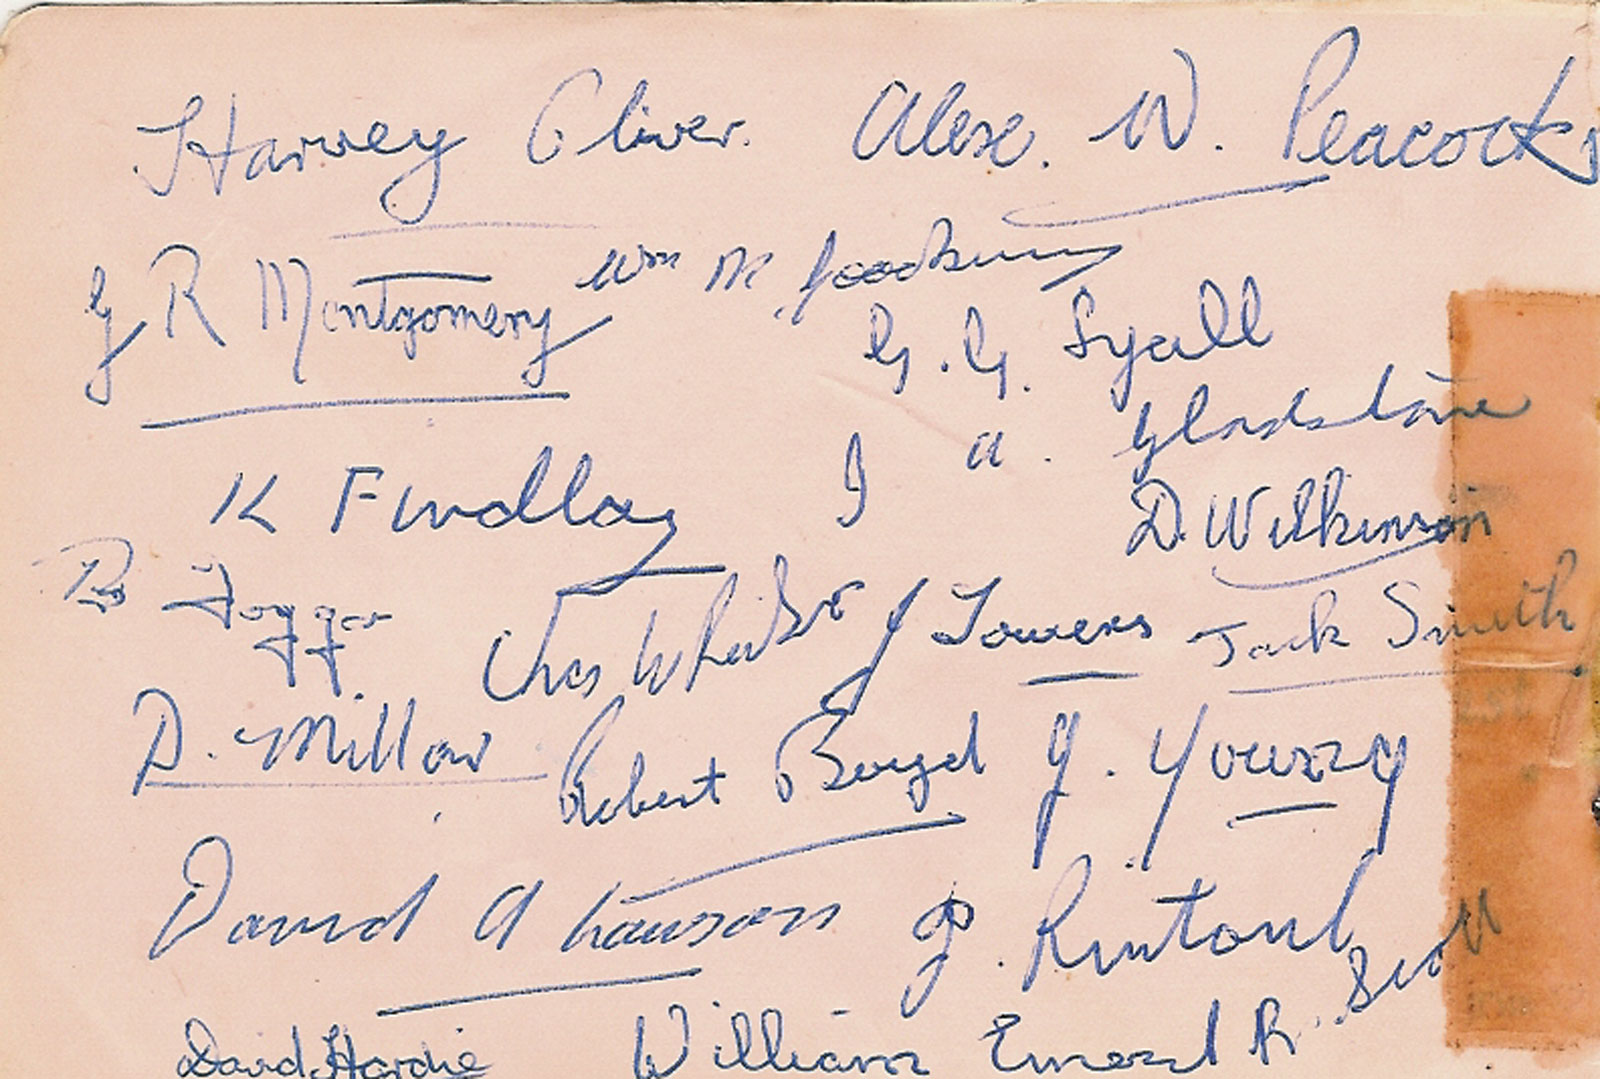 Harvey Oliver. Alex. W. Peacock
G R Montgomery Wm M
G. G. Lyall
I A. Gladstone
K Findlay
D. Wilkinson
Chas Whittaker J Towers Jack Smith
D. Millar
Robert Boyd J. Young
David A Lawson J. Rintoul
David Hardie William Ernest R. Scott